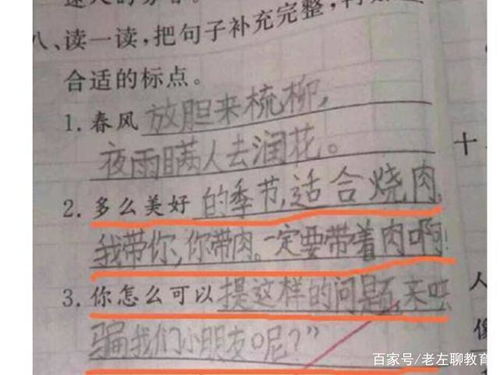 八、读一读，把句子补充完整，
合适的标点。
1.春风 放胆来梳柳，
夜雨瞒人去润花。
2.多么美好 的季节，适合烧肉，
我带你，你带肉。一定要带着肉啊！
3.你怎么可以 提这样的问题，来
骗我们小朋友呢？”
十
人
像
百家号/老左聊教育